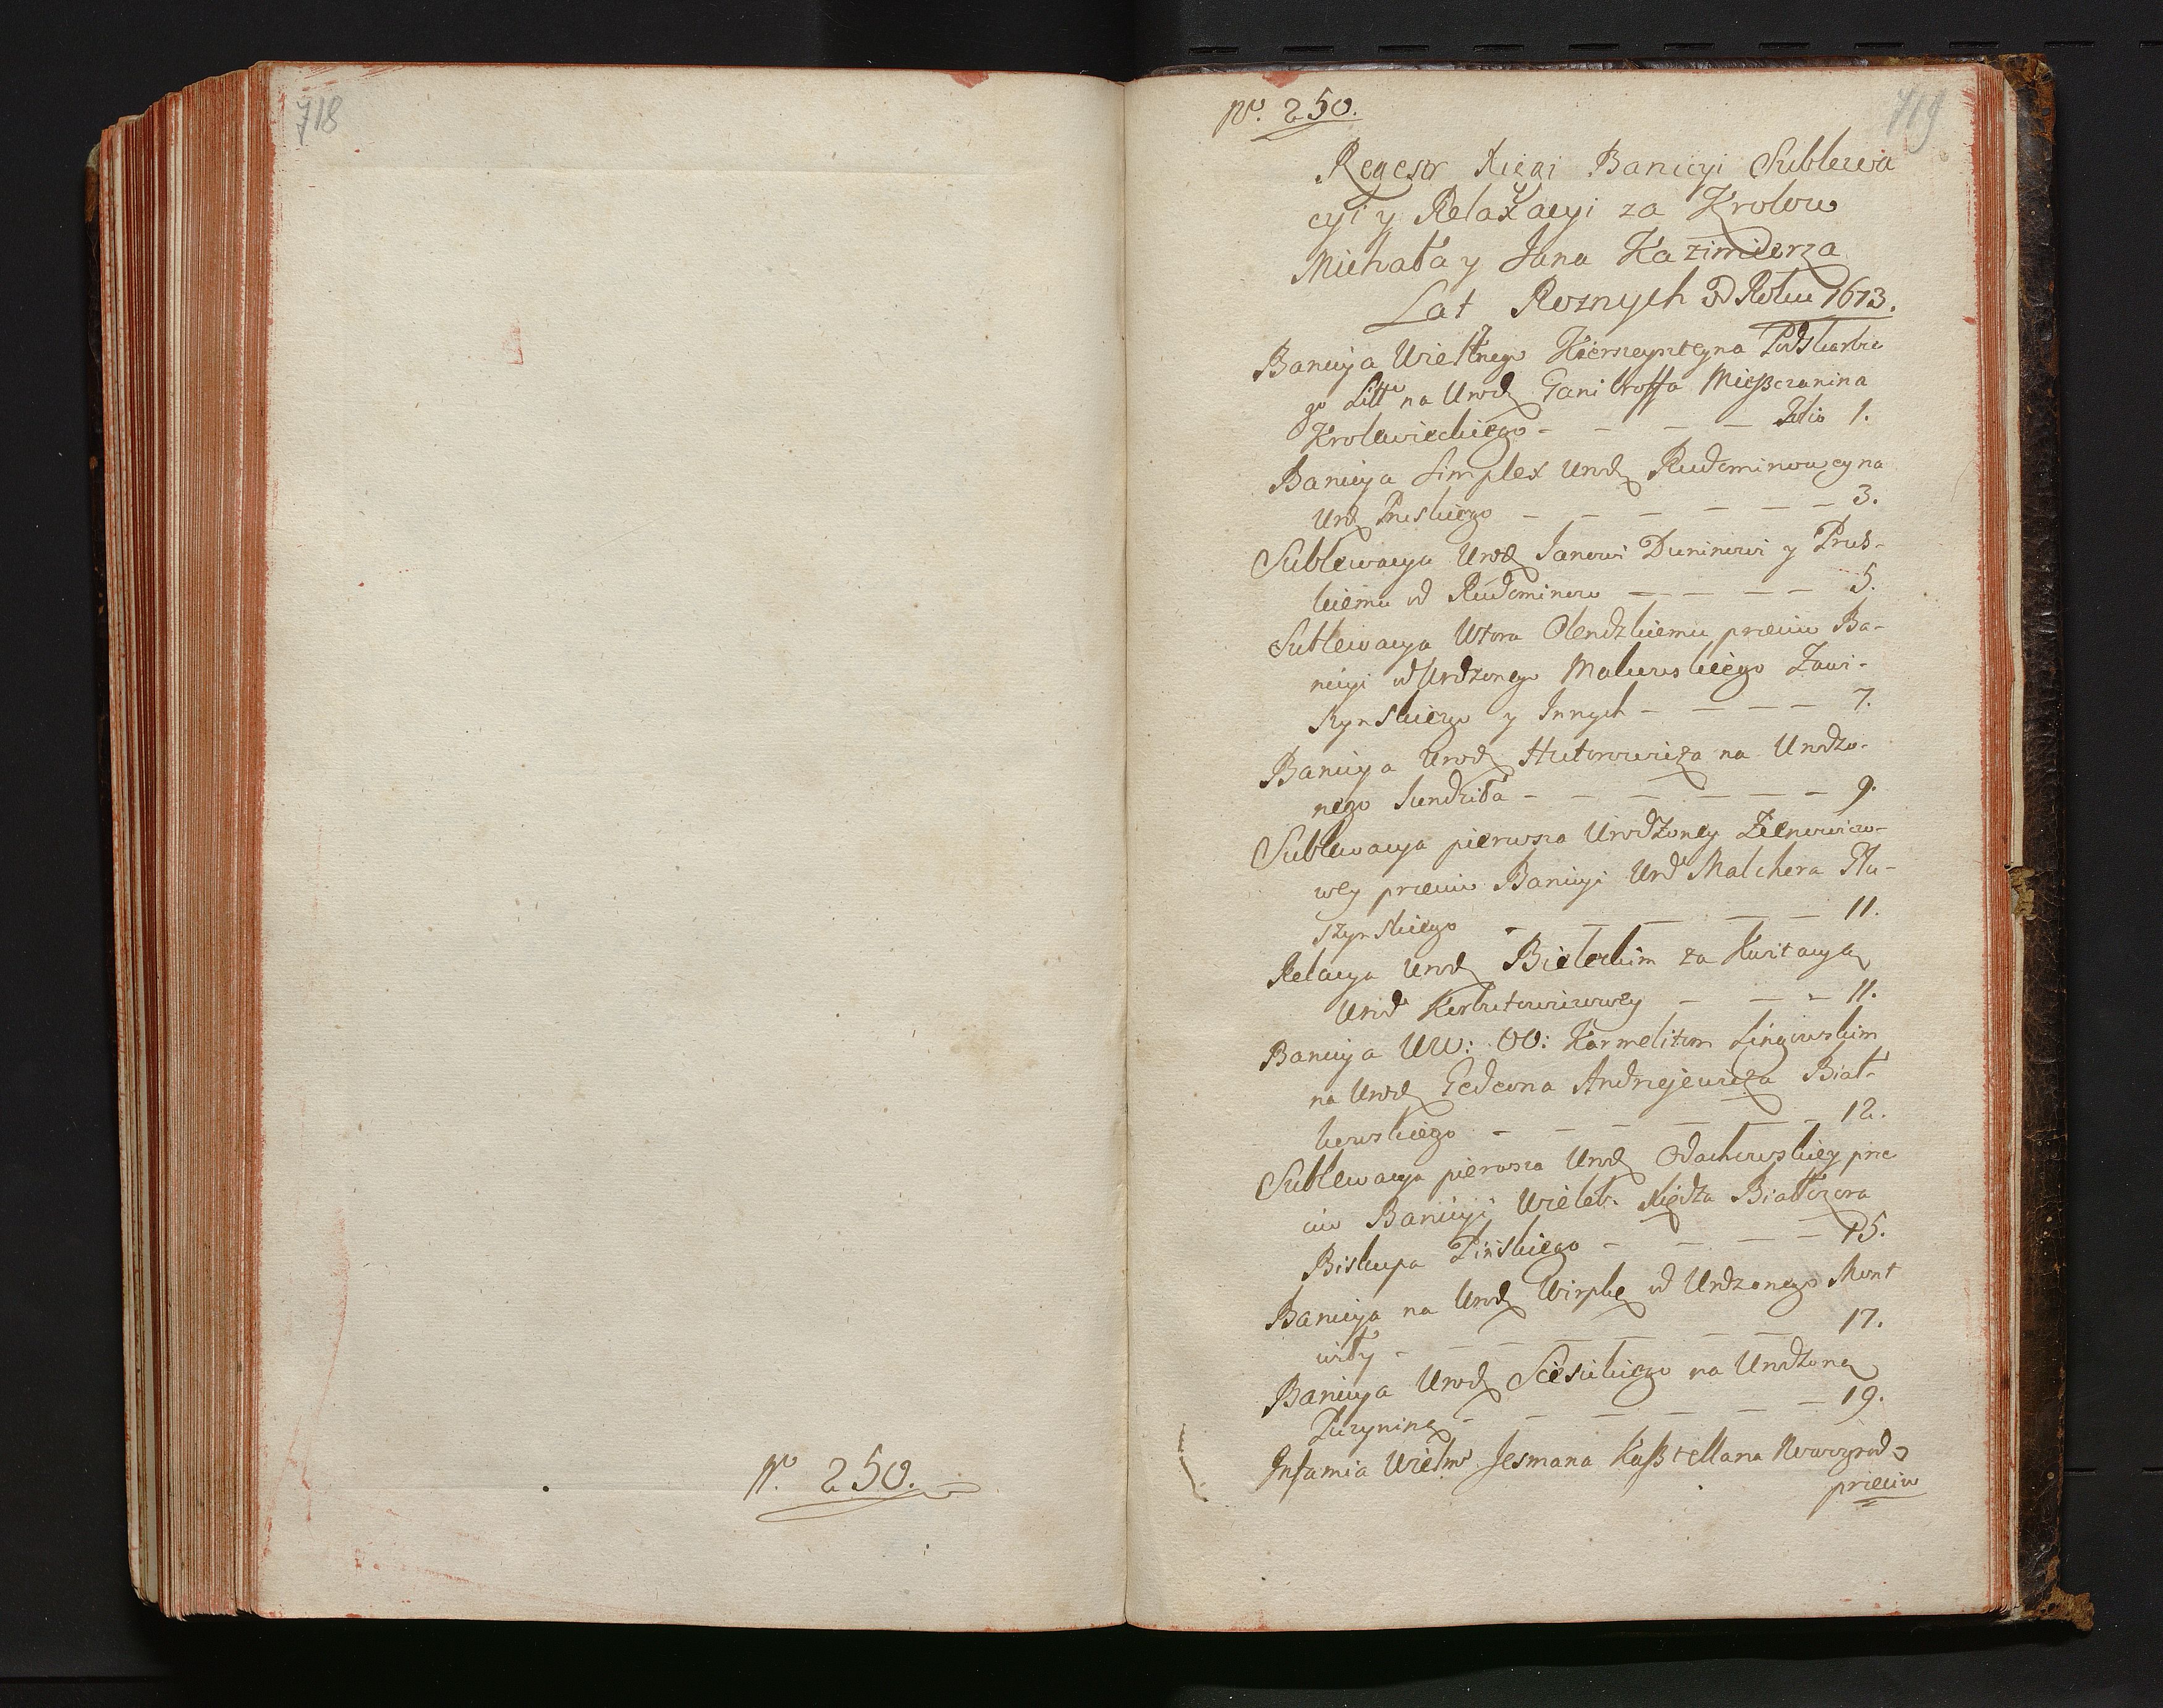 718
No. 250.
719
No. 250.
Regestr Xięgi Banicyi Sublewa
cyi y Relaxacyi za Krolow
Michała y Jana Kazimierza
Lat Roznych Od Roku 1673.
Banicya Wielbnego Kierszeyszteyna Podskarbie
go Litt. na Urodz Ganibroffa Mieszczanina
Krolewieckiego - - - - Folio 1.
Banicya Simplex Urodz Rudominowey na
Urdz Pruskiego - - - - - - 3.
Sublewacya Urodz Janowi Duninowi y Prus-
kiemu od Rudominow - - - - - 5.
Sublewacya Wtora Olendzkiemu przeciw Ba-
nicyi od Urdzonego Makowskiego Zawi-
szynskiego y Innych - - - - - 7.
Banicya Urodz Hutorowicza na Urodzo-
nego Sundziła - - - - - - 9.
Sublewacya pierwsza Urodzoney Zienowiczo-
wey przeciw Banicyi Urd Malchera Płu-
szynskiego - - - - - 11.
Relacya Urodz Bieleckim za Kwitacyą
Urod Korbutowiczowey - - - 11.
Banicya WW: OO: Karmelitom Lingowskim
na Urodz Gedeona Andrzejewicza Biał-
kowskiego - - - - - - 12.
Sublewacya pierwsza Urodz Odachowskiey prze
ciw Banicyi Wieleb. Xiędza Białłozora
Biskupa Pińskiego - - - - 15.
Banicya na Urodz Wirpszę od Urdzonego Mont
wiłły - - - - - - 17.
Banicya Urodz Sciesickiego na Urodzoną
Puzyninę - - - - - - 19.
Infamia Wielm Jesmana Kasztellana Nowogrod-
przeciw